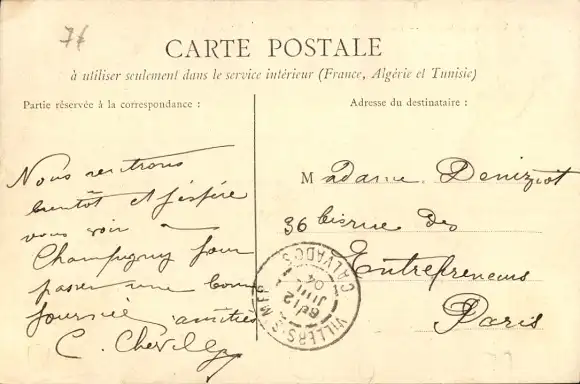 76
CARTE POSTALE
à utiliser seulement dans le service intérieur (France, Algérie et Tunisie)
Partie réservée à la correspondance :
Adresse du destinataire :
Nous rentrons
bientôt et j'espère
vous voir à
Champigny pour
passer une bonne
journée amitiés
C.
Madame Deniziot
36 bis rue des
Entrepreneurs
Paris
VILLERS-S-MER
CALVADOS
12
JUIL
04